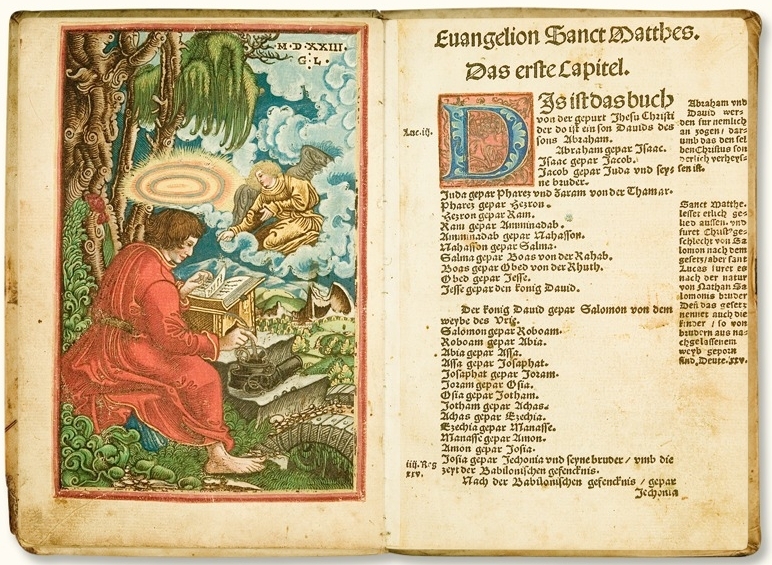 M·D·XXIII.
G·L·
Euangelion Sanct Matthes.
Das erste Capitel.
DIs ist das buch
von der gepurt Jhesu Christi
der do ist ein son Dauids des
sons Abraham.
Abraham gepar Isaac.
Isaac gepar Jacob.
Jacob gepar Juda vnd seys
ne bruder.
Juda gepar Pharez vnd Saram von der Thamar.
Pharez gepar Hezron.
Hezron gepar Ram.
Ram gepar Amminadab.
Amminadab gepar Nahasson.
Nahasson gepar Salma.
Salma gepar Boas von der Rahab.
Boas gepar Obed von der Rhuth.
Obed gepar Jesse.
Jesse gepar den konig Dauid.
Der konig Dauid gepar Salomon von dem
weybe des Vrig.
Salomon gepar Roboam.
Roboam gepar Abia.
Abia gepar Assa.
Assa gepar Josaphat.
Josaphat gepar Joram.
Joram gepar Osia.
Osia gepar Jotham.
Jotham gepar Achas.
Achas gepar Ezechia.
Ezechia gepar Manasse.
Manasse gepar Amon.
Amon gepar Josia.
Josia gepar Jechonia vnd seyne bruder / vmb die
zeyt der Babilonischen gefencknis.
Nach der Babilonischen gefencknis / gepar
Jechonia
Luc.iij.
iiij.Reg
xxv.
Abraham vnd
Dauid wer-
den fur nemlich
an zogen / dar-
umb das den sel
ben Christus son
derlich verheys-
sen ist.
Sanct Matthe.
lesset etlich ge-
lied aussen, vnd
furet Christ' ge-
schlecht von Sa
lomon nach dem
gesetz / aber sant
Lucas furet es
nach der natur
von Nathan Sa
lomonis bruder
Den das gesetz
nennet auch die
kinder / so von
brudern aus na-
chgelassenem
weyb geporn
sind, Deut. xxv.